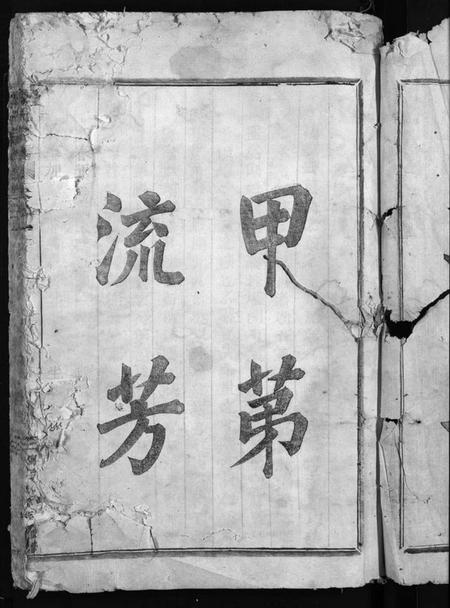 甲第
流芳